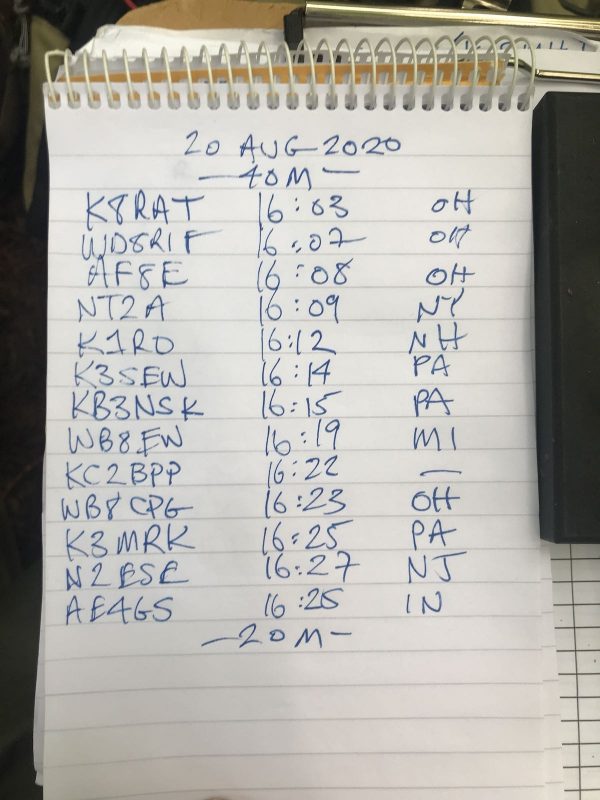 20 AUG 2020
— 40M —
K8RAT 16:03 OH
WD8RIF 16:07 OH
AF8E 16:08 OH
NT2A 16:09 NY
K1RO 16:12 NH
K3SEW 16:14 PA
KB3NSK 16:15 PA
WB8EW 16:19 MI
KC2BPP 16:22 —
WB8CPG 16:23 OH
K3MRK 16:25 PA
N2ESE 16:27 NJ
AE4GS 16:25 IN
— 20M —